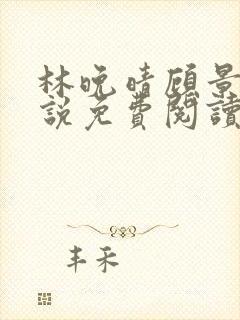 林晚晴顾景
说免費閱讀
丰禾